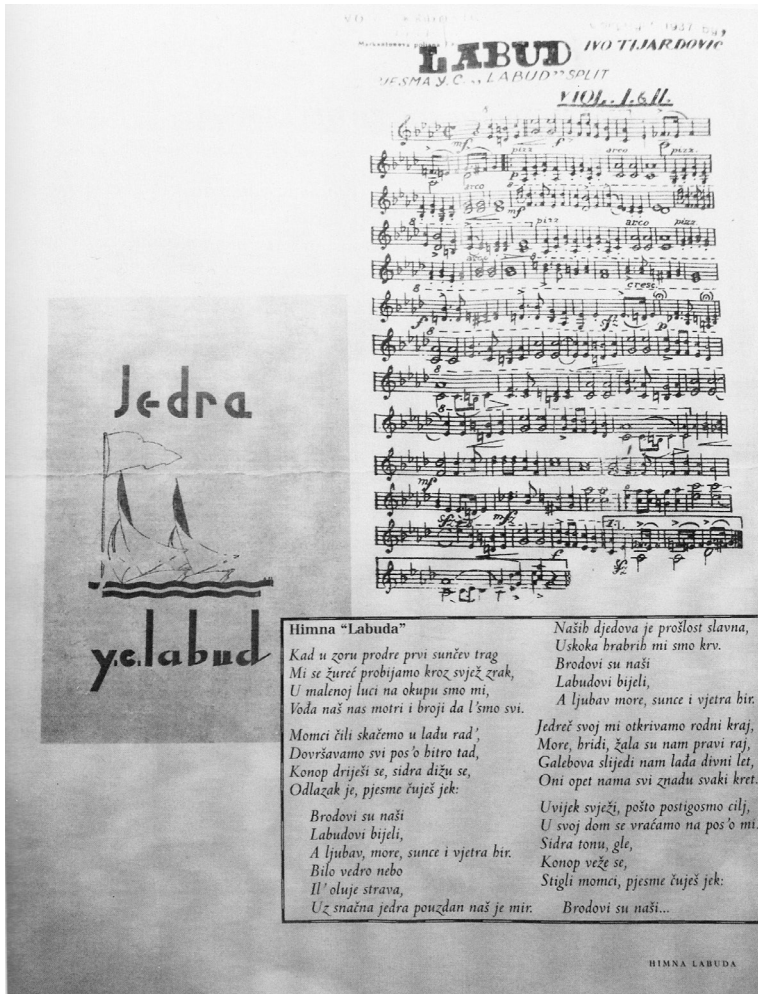 1937
LABUD IVO TIJARDOVIĆ
Y.C. „LABUD” SPLIT
VIOL. I. & II.
mf f
pizz arco pizz.
p
arco
mf
pizz arco pizz.
arco
cresc.
8
f sfz p
8
8
8
mf
sfz mfz
f
sfz
Jedra
y.c.labud
Himna “Labuda”
Kad u zoru prodre prvi sunčev trag
Mi se žureć probijamo kroz svjež zrak,
U malenoj luci na okupu smo mi,
Vođa naš nas motri i broji da l'smo svi.
Momci čili skačemo u lađu rad',
Dovršavamo svi pos'o hitro tad,
Konop driješi se, sidra dižu se,
Odlazak je, pjesme čuješ jek:
Brodovi su naši
Labudovi bijeli,
A ljubav, more, sunce i vjetra hir.
Bilo vedro nebo
Il' oluje strava,
Uz snačna jedra pouzdan naš je mir.
Naših djedova je prošlost slavna,
Uskoka hrabrih mi smo krv.
Brodovi su naši
Labudovi bijeli,
A ljubav more, sunce i vjetra hir.
Jedreč svoj mi otkrivamo rodni kraj,
More, hridi, žala su nam pravi raj,
Galebova slijedi nam lađa divni let,
Oni opet nama svi znadu svaki kret.
Uvijek svježi, pošto postigosmo cilj,
U svoj dom se vraćamo na pos'o mi.
Sidra tonu, gle,
Konop veže se,
Stigli momci, pjesme čuješ jek:
Brodovi su naši...
HIMNA LABUDA